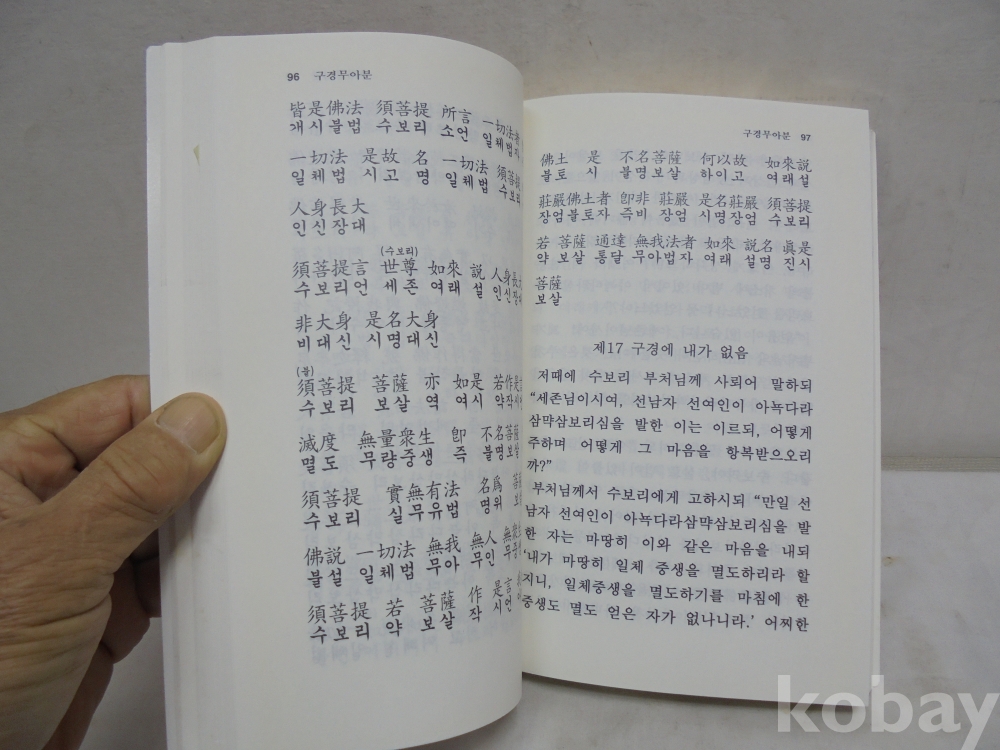 96 구경무아분
皆是佛法 須菩提 所言 一切法者
개시불법 수보리 소언 일체법자
一切法 是故 名 一切法 須菩提
일체법 시고 명 일체법 수보리
人身長大
인신장대
(수보리)
須菩提言 世尊 如來 説 人身長大
수보리언 세존 여래 설 인신장대
非大身 是名大身
비대신 시명대신
(불)
須菩提 菩薩 亦 如是 若作是言
수보리 보살 역 여시 약작시언
滅度 無量衆生 卽 不名菩薩
멸도 무량중생 즉 불명보살
須菩提 實無有法 名爲 菩
수보리 실무유법 명위 보
佛説 一切法 無我 無人 無衆生
불설 일체법 무아 무인 무중생
須菩提 若 菩薩 作 是言
수보리 약 보살 작 시언
구경무아분 97
佛土 是 不名菩薩 何以故 如來説
불토 시 불명보살 하이고 여래설
莊嚴佛土者 卽非 莊嚴 是名莊嚴 須菩提
장엄불토자 즉비 장엄 시명장엄 수보리
若 菩薩 通達 無我法者 如來 説名 眞是
약 보살 통달 무아법자 여래 설명 진시
菩薩
보살
제17 구경에 내가 없음
저때에 수보리 부처님께 사뢰어 말하되
“세존님이시여, 선남자 선여인이 아뇩다라
삼먁삼보리심을 발한 이는 이르되, 어떻게
주하며 어떻게 그 마음을 항복받으오리
까?”
부처님께서 수보리에게 고하시되 “만일 선
남자 선여인이 아뇩다라삼먁삼보리심을 발
한 자는 마땅히 이와 같은 마음을 내되
‘내가 마땅히 일체 중생을 멸도하리라 할
지니, 일체중생을 멸도하기를 마침에 한
중생도 멸도 얻은 자가 없나니라.’ 어찌한
kobay